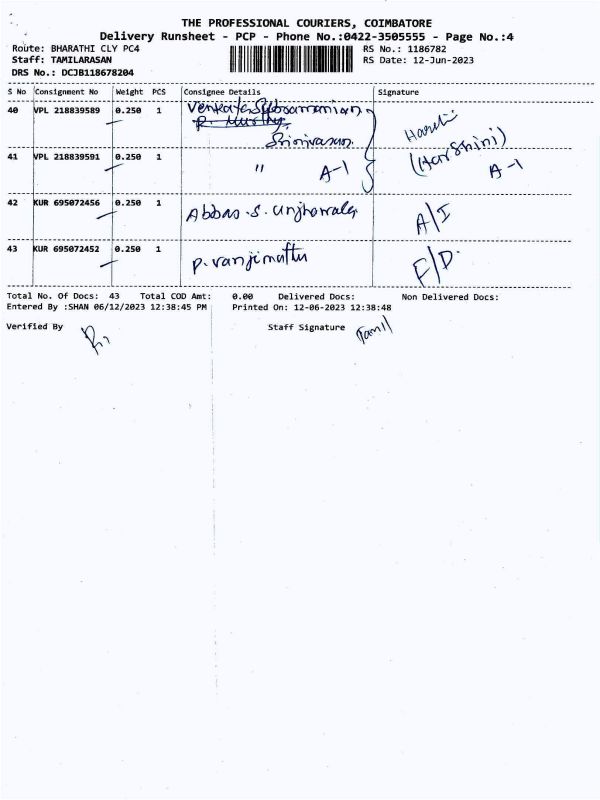 THE PROFESSIONAL COURIERS, COIMBATORE
Delivery Runsheet - PCP - Phone No.:0422-3505555 - Page No.:4
Route: BHARATHI CLY PC4 RS No.: 1186782
Staff: TAMILARASAN RS Date: 12-Jun-2023
DRS No.: DCJB118678204
S No Consignment No Weight PCS Consignee Details Signature
40 VPL 218839589 0.250 1 Venkata Subramanian
R. Murthy
Srinivasan
41 VPL 218839591 0.250 1 " A-1 (Harshini) A-1
42 KUR 695072456 0.250 1 Abbas .S. A/I
43 KUR 695072452 0.250 1 P. Vanjimuthu F/D.
Total No. Of Docs: 43 Total COD Amt: 0.00 Delivered Docs: Non Delivered Docs:
Entered By :SHAN 06/12/2023 12:38:45 PM Printed On: 12-06-2023 12:38:48
Verified By Staff Signature Tamil